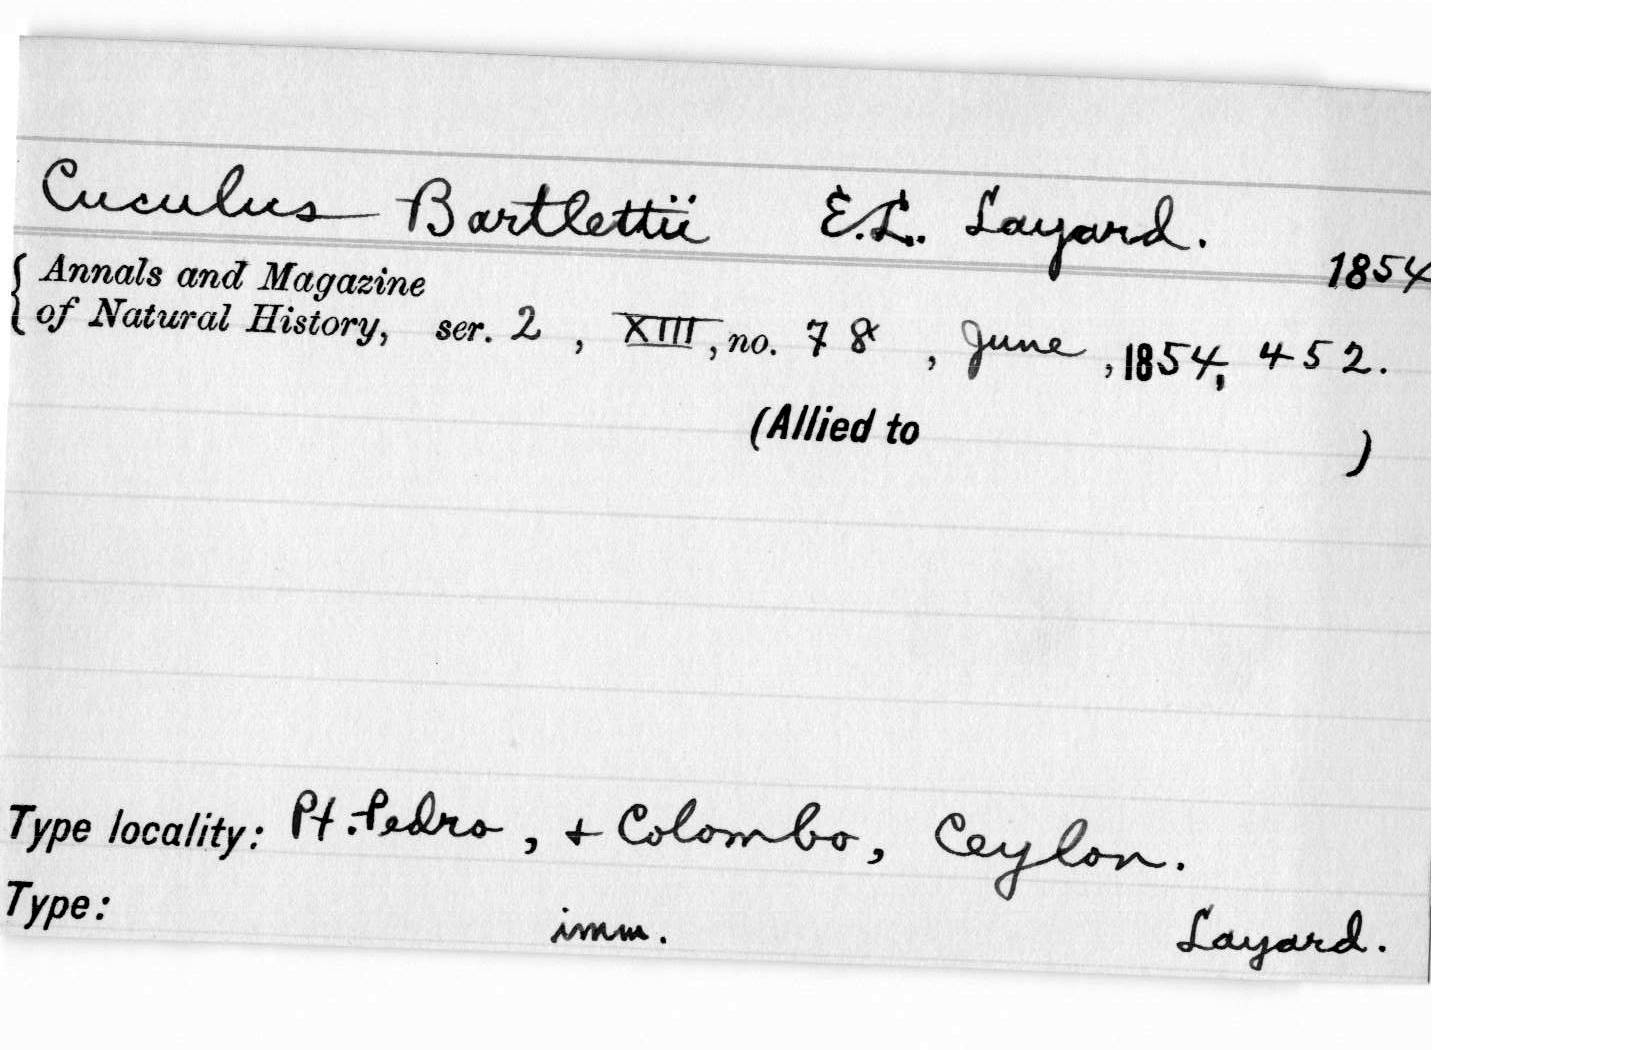 Cuculus Bartlettii E.L. Layard.
1854
{ Annals and Magazine
of Natural History, ser. 2, XIII, no. 78, June, 1854, 452.
(Allied to )
Type locality: Pt. Pedro, + Colombo, Ceylon.
Type: imm. Layard.